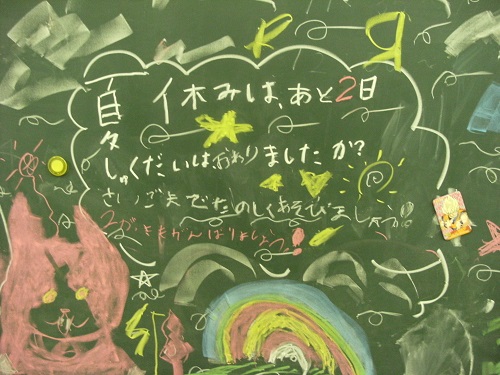 夏休みは、あと2日
しゅくだいはおわりましたか?
さいごまでたのしくあそびましょう!!
2がっきもがんばりましょう!